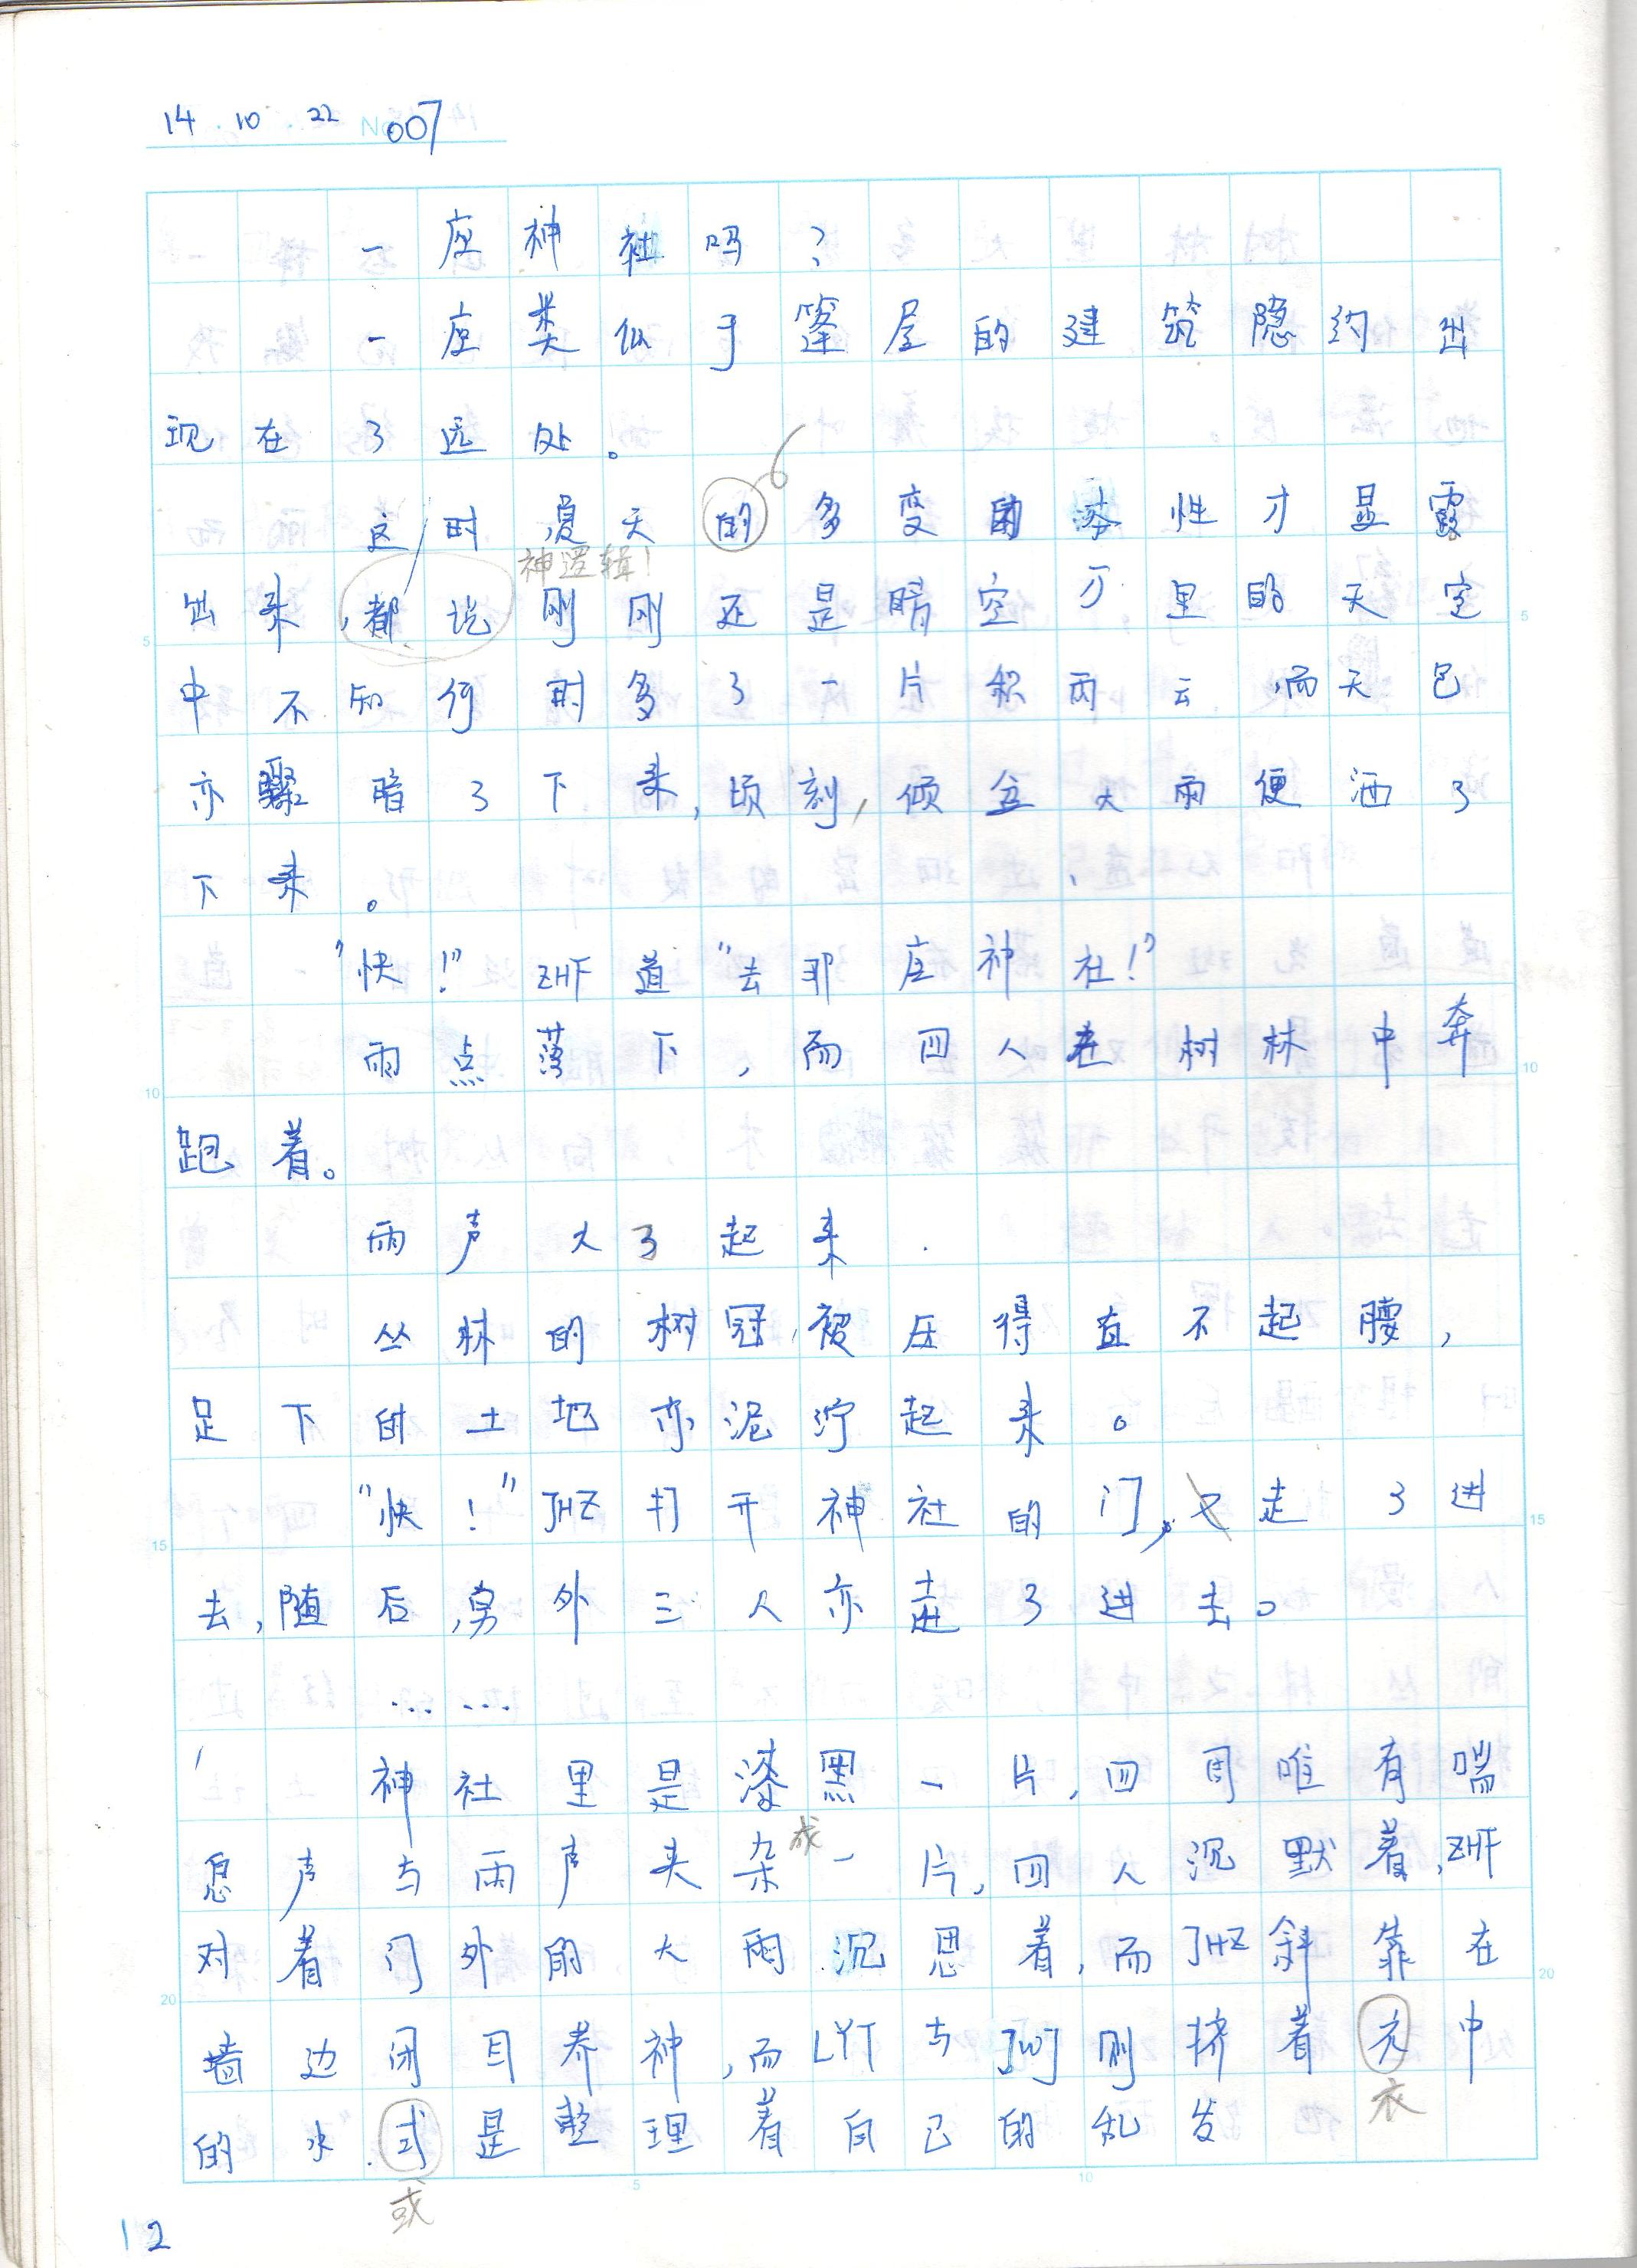 14 10 22 007
一座神社吗?
一座类似于篷屋的建筑隐约出
现在了远处。
这时,夏天的多变的 性才显露
神逻辑!
出来,都说刚刚还是晴空万里的天空
中不知何时多了一片积雨云,而天色
亦骤暗了下来,顷刻,倾盆大雨便洒了
下来。
"快!"ZHF道"去那座神社!"
雨点落下,而四人在树林中奔
跑着。
雨声大了起来.
丛林的树冠被压得直不起腰,
足下的土地亦泥泞起来。
"快!"JHZ打开神社的门,又走了进
去,随后,另外三人亦走了进去。
……
神社里是漆黑一片,四周唯有喘
成
息声与雨声夹杂一片,四人沉默着,ZHF
对着门外的大雨沉思着,而JHZ斜靠在
墙边闭目养神,而LYT与JWJ则挤着 中
衣
的水.式是整理着自己的乱发
或
12
5
10
15
20
5
10
15
20
5
10